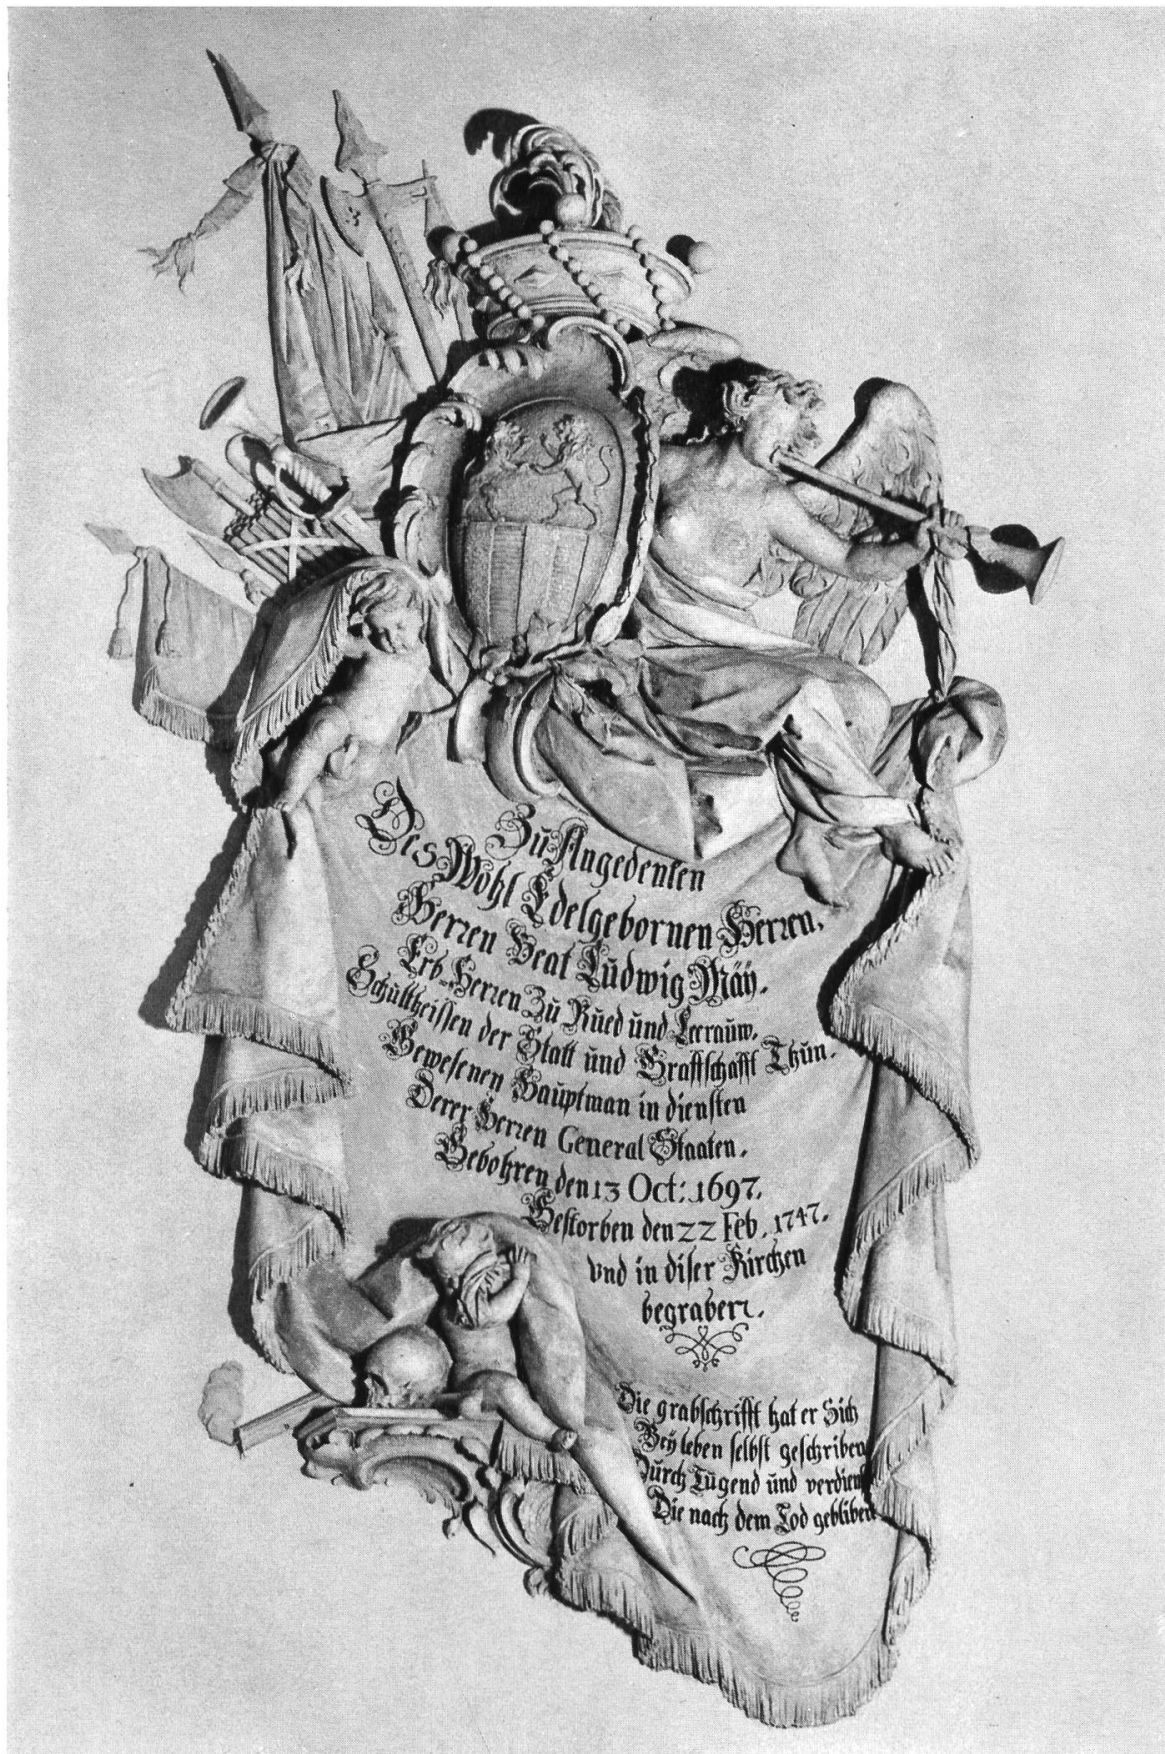 Zu Angedencken
Des Wohl Edelgebornen Herren,
Herren Beat Ludwig Mäÿ.
Erb-Herren Zu Rued und Leerauw.
Schultheissen der Statt und Graffschafft Thun.
Gewesenen Hauptman in diensten
Derer Herren General Staaten.
Gebohren den 13 Oct: 1697.
Gestorben den 22 Feb. 1747.
vnd in diser Kirchen
begraben.
Die grabschrifft hat er Sich
Beÿ leben selbst geschriben
Durch Tugend und verdienst
Die nach dem Tod gebliben